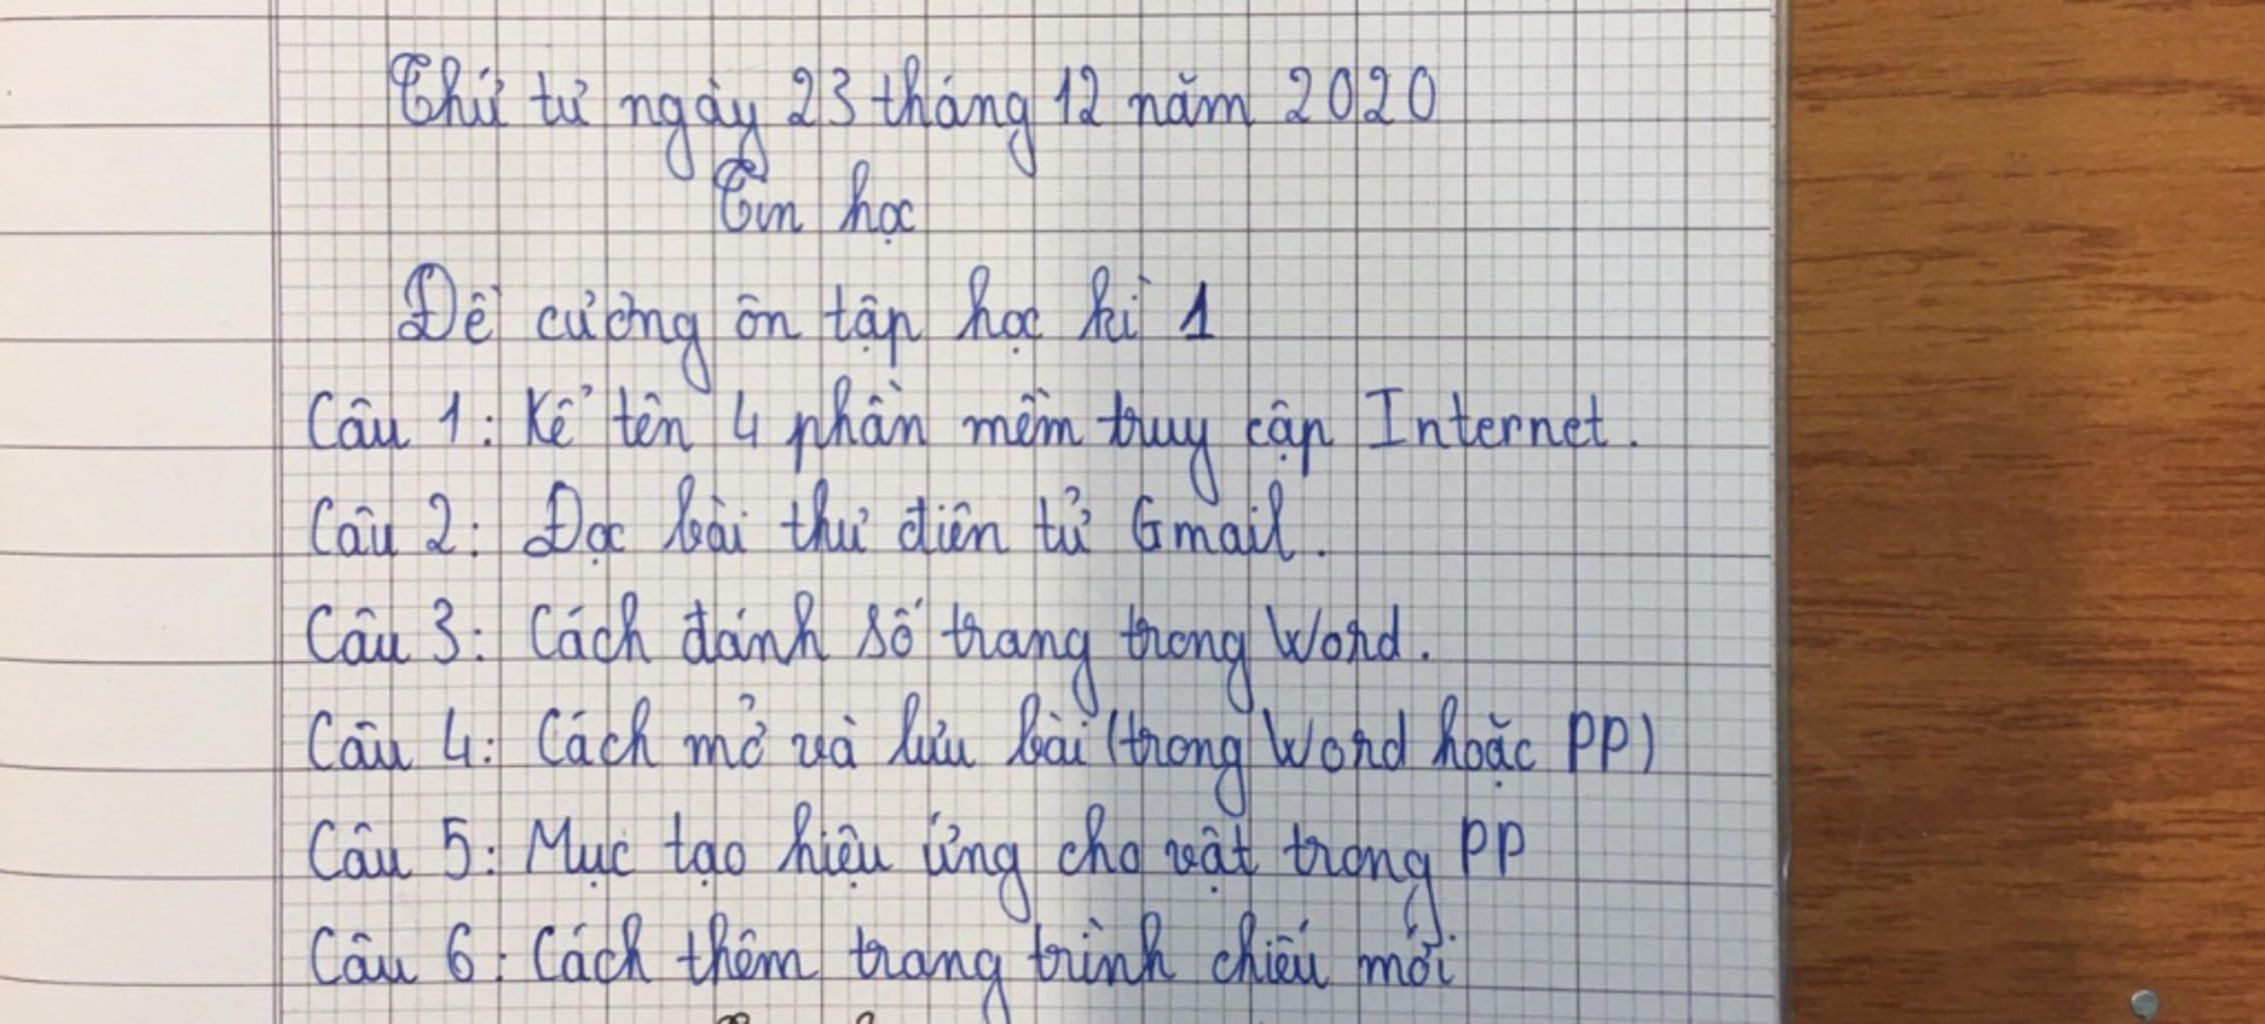 Thứ tư ngày 23 tháng 12 năm 2020
Tin học
Đề cương ôn tập học kì 1
Câu 1: Kể tên 4 phần mềm truy cập Internet.
Câu 2: Đọc bài thư điện tử Gmail.
Câu 3: Cách đánh số trang trong Word.
Câu 4: Cách mở và lưu bài (trong Word hoặc PP)
Câu 5: Mục tạo hiệu ứng cho vật trong PP
Câu 6: Cách thêm trang trình chiếu mới.